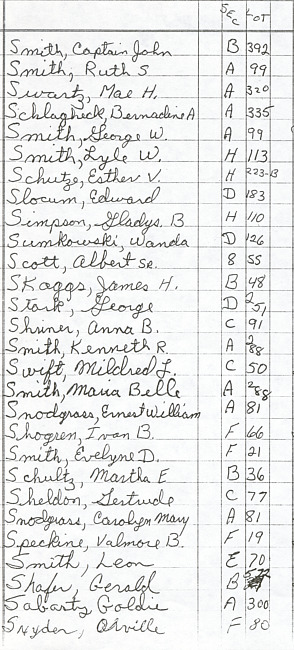 SEC LOT
Smith, Captain John B 392
Smith, Ruth S A 99
Swartz, Mae H. A 320
Schlagheck, Bernadine A A 335
Smith, George W. A 99
Smith, Lyle W. H 113
Schutze, Esther V. H 223-B
Slocum, Edward D 183
Simpson, Gladys B H 110
Sumkowski, Wanda D 126
Scott, Albert Sr. 8 55
Skaggs, James H. B 48
Stark, George D 251
Shriner, Anna B. C 91
Smith, Kenneth R. A 288
Swift, Mildred L. C 50
Smith, Maria Belle A 288
Snodgrass, Ernest William A 81
Shogren, Ivan B. F 66
Smith, Evelyne D. F 21
Schultz, Martha E. B 36
Sheldon, Gertrude C 77
Snodgrass, Carolyn Mary A 81
Speckine, Valmore B. F 19
Smith, Leon E 70
Shafer, Gerald B
Sabartz Goldie A 300
Snyder, Orville F 80